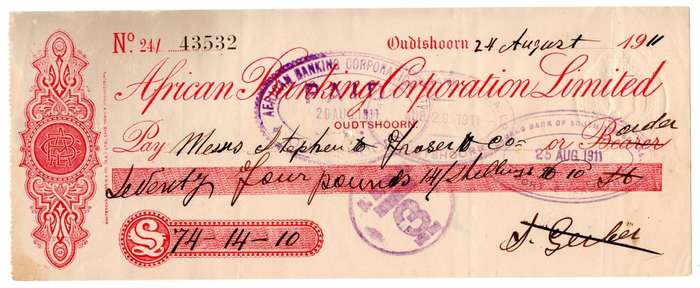 No. 24/ 43532 Oudtshoorn 24 August 1911
African Banking Corporation Limited
AFRICAN BANKING CORPORATION
PAID
26 AUG 1911
OUDTSHOORN
Pay Messrs Stephen Fraser & Co or Bearer order
BANK OF
25 AUG 1911
Seventy Four pounds 14/ Shillings & 10
£ 74-14-10